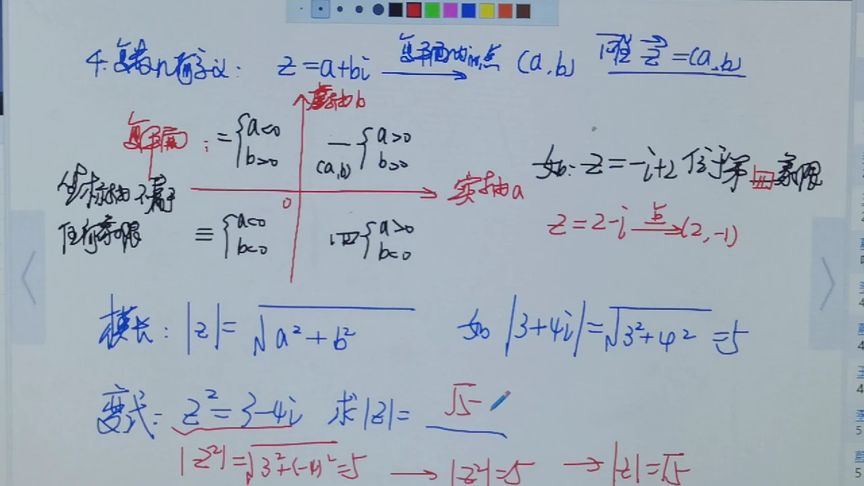 4. 复数几何意义: z=a+bi 复平面内的点 (a,b) 向量 z=(a,b)
虚轴b
复平面 二{a<0 b>0 一{a>0 b>0
(a,b)
坐标轴不属于 0 实轴a
任何象限 三{a<0 b<0 四{a>0 b<0
如: z=-i+2 位于第四象限
z=2-i 点 (2,-1)
模长: |z|=√(a²+b²) 如 |3+4i|=√(3²+4²)=5
变式: z²=3-4i 求|z|= √5
|z²|=√(3²+(-4)²)=5 → |z²|=5 → |z|=√5